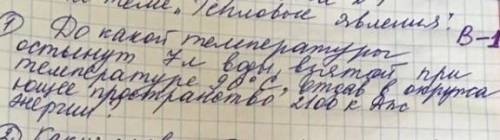 теме „Тепловые явления".
В-1
1) До какой температуры
остынут 7л воды, взятой при
температуре 90°С, отдав в окружа
ющее пространство 2100 кДж
энергии?
2)